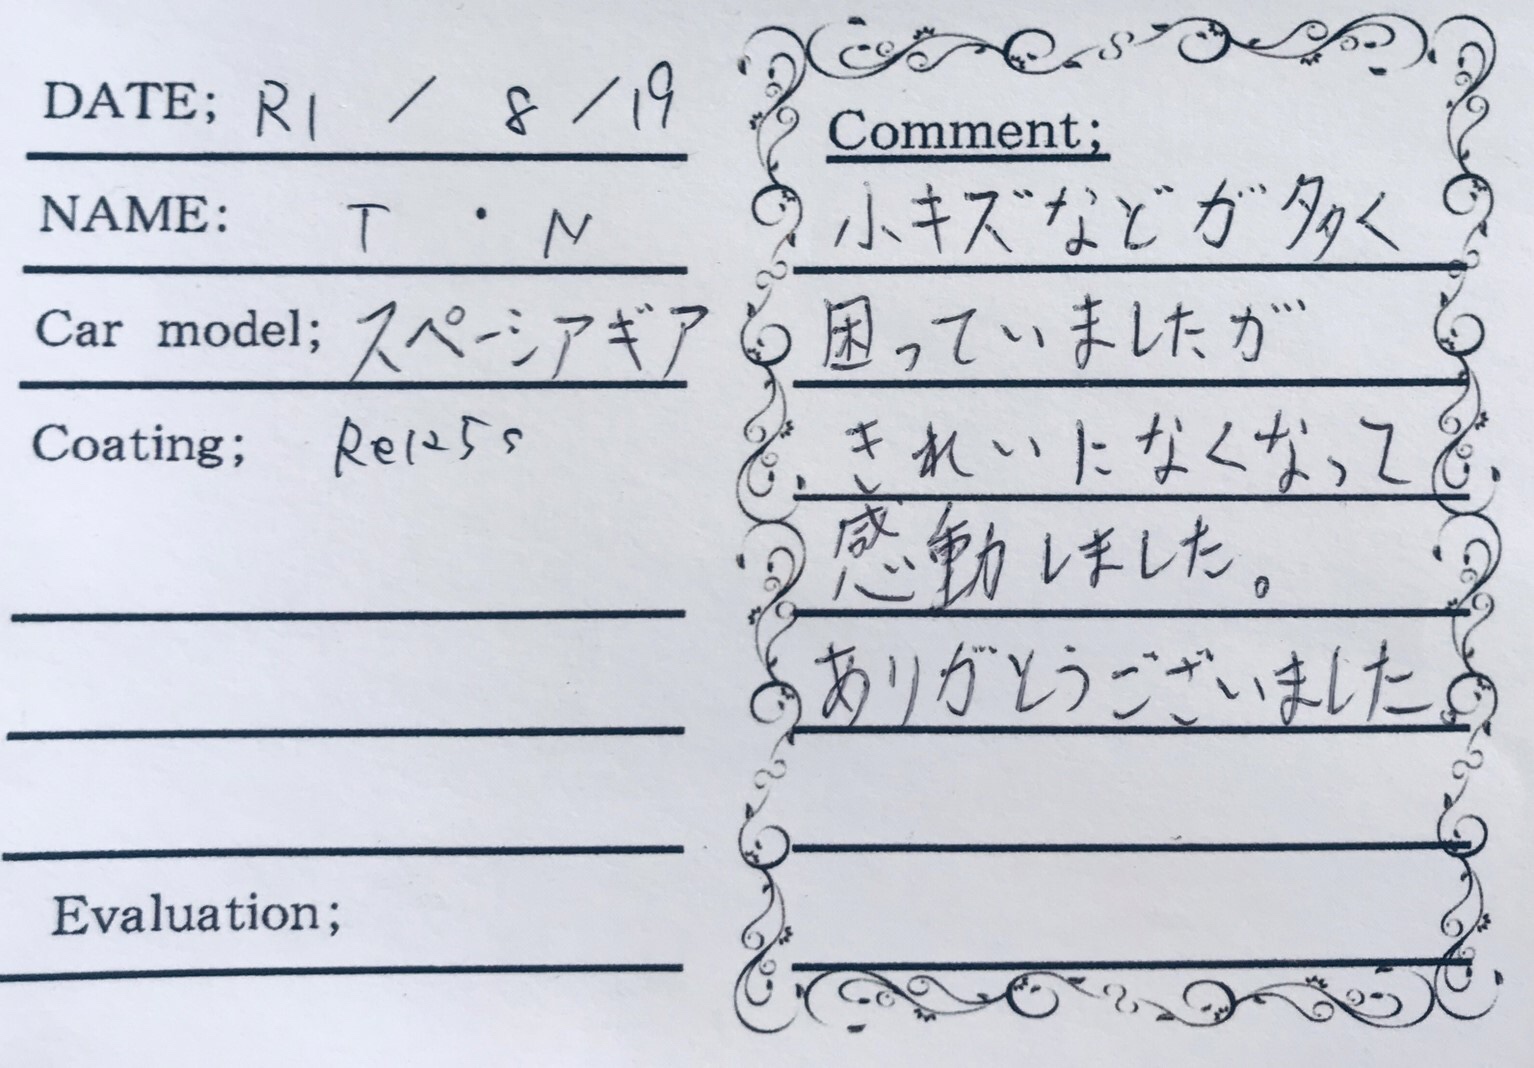 DATE; R1 / 8 /19
NAME: T ・ N
Car model; スペーシアギア
Coating; Re1255
Evaluation;
Comment;
小キズなどが多く
困っていましたが
きれいになくなって
感動しました。
ありがとうございました。